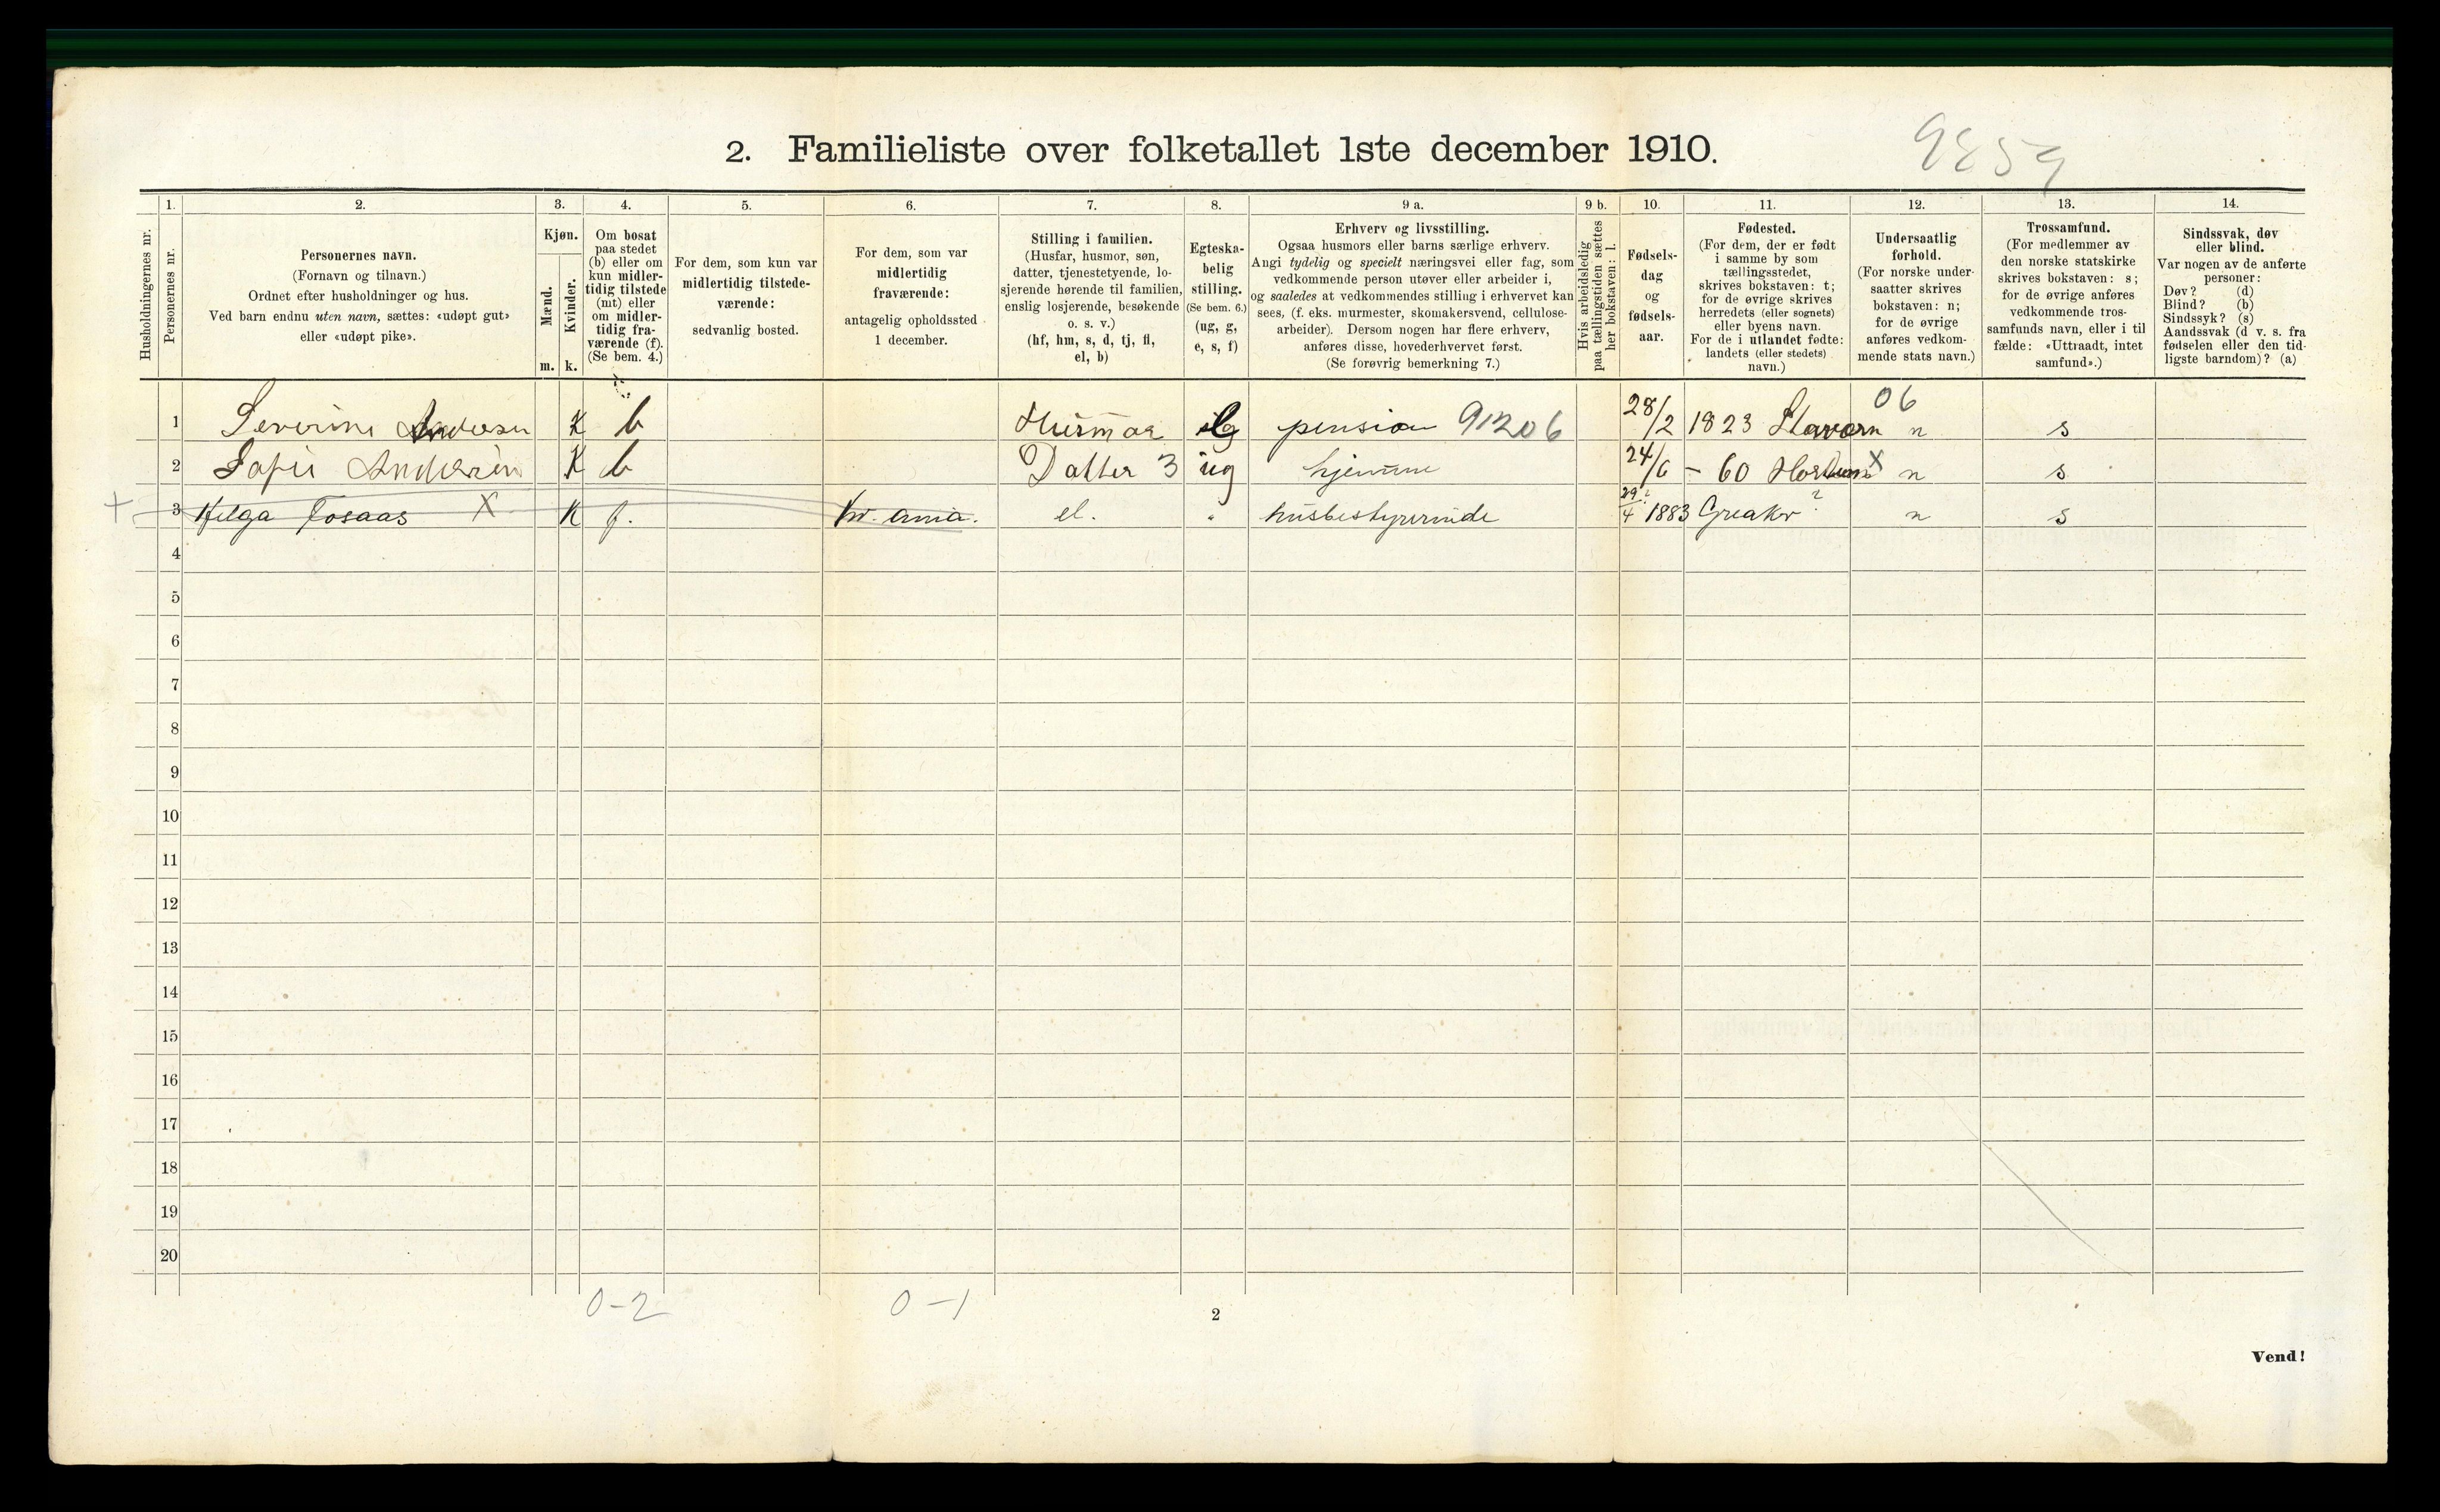 2. Familieliste over folketallet 1ste december 1910.
9859
Husholdningernes nr.
1.
Personernes nr.
2.
Personernes navn.
(Fornavn og tilnavn.)
Ordnet efter husholdninger og hus.
Ved barn endnu uten navn, sættes: «udøpt gut»
eller «udøpt pike».
3.
Kjøn.
Mænd.
Kvinder.
m. k.
4.
Om bosat
paa stedet
(b) eller om
kun midler-
tidig tilstede
(mt) eller
om midler-
tidig fra-
værende (f).
(Se bem. 4.)
5.
For dem, som kun var
midlertidig tilstede-
værende:
sedvanlig bosted.
6.
For dem, som var
midlertidig
fraværende:
antagelig opholdssted
1 december.
7.
Stilling i familien.
(Husfar, husmor, søn,
datter, tjenestetyende, lo-
sjerende hørende til familien,
enslig losjerende, besøkende
o. s. v.)
(hf, hm, s, d, tj, fl,
el, b)
8.
Egteska-
belig
stilling.
(Se bem. 6.)
(ug, g,
e, s, f)
9 a.
Erhverv og livsstilling.
Ogsaa husmors eller barns særlige erhverv.
Angi tydelig og specielt næringsvei eller fag, som
vedkommende person utøver eller arbeider i,
og saaledes at vedkommendes stilling i erhvervet kan
sees, (f. eks. murmester, skomakersvend, cellulose-
arbeider). Dersom nogen har flere erhverv,
anføres disse, hovederhvervet først.
(Se forøvrig bemerkning 7.)
9 b.
Hvis arbeidsledig
paa tællingstiden sættes
her bokstaven: l.
10.
Fødsels-
dag
og
fødsels-
aar.
11.
Fødested.
(For dem, der er født
i samme by som
tællingsstedet,
skrives bokstaven: t;
for de øvrige skrives
herredets (eller sognets)
eller byens navn.
For de i utlandet fødte:
landets (eller stedets)
navn.)
12.
Undersaatlig
forhold.
(For norske under-
saatter skrives
bokstaven: n;
for de øvrige
anføres vedkom-
mende stats navn.)
13.
Trossamfund.
(For medlemmer av
den norske statskirke
skrives bokstaven: s;
for de øvrige anføres
vedkommende tros-
samfunds navn, eller i til
fælde: «Uttraadt, intet
samfund».)
14.
Sindssvak, døv
eller blind.
Var nogen av de anførte
personer:
Døv? (d)
Blind? (b)
Sindssyk? (s)
Aandssvak (d v. s. fra
fødselen eller den tid-
ligste barndom)? (a)
06
1 Severine Andersen K b Husmor pension 91206 28/2 1823 Stavern n s
2 Sofie Andersen K b Datter 3 ug hjemme 24/6 - 60 Horten X n s
+ 3 Helga Tosaas X K f. Kr.ania. el. " husbestyrerinde 29/4 ? 1883 Greaker ? n s
4
5
6
7
8
9
10
11
12
13
14
15
16
17
18
19
20
0-2 0-1
2
Vend!